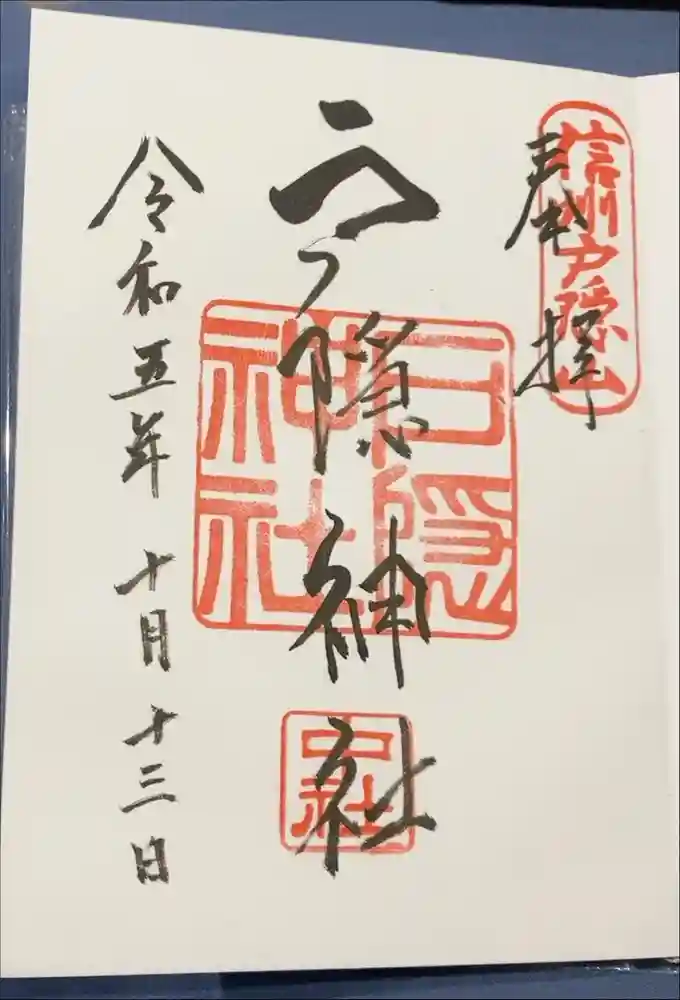 奉拝
信州戸隠山
戸隠神社
戸隠
神社
中社
令和五年十月十三日